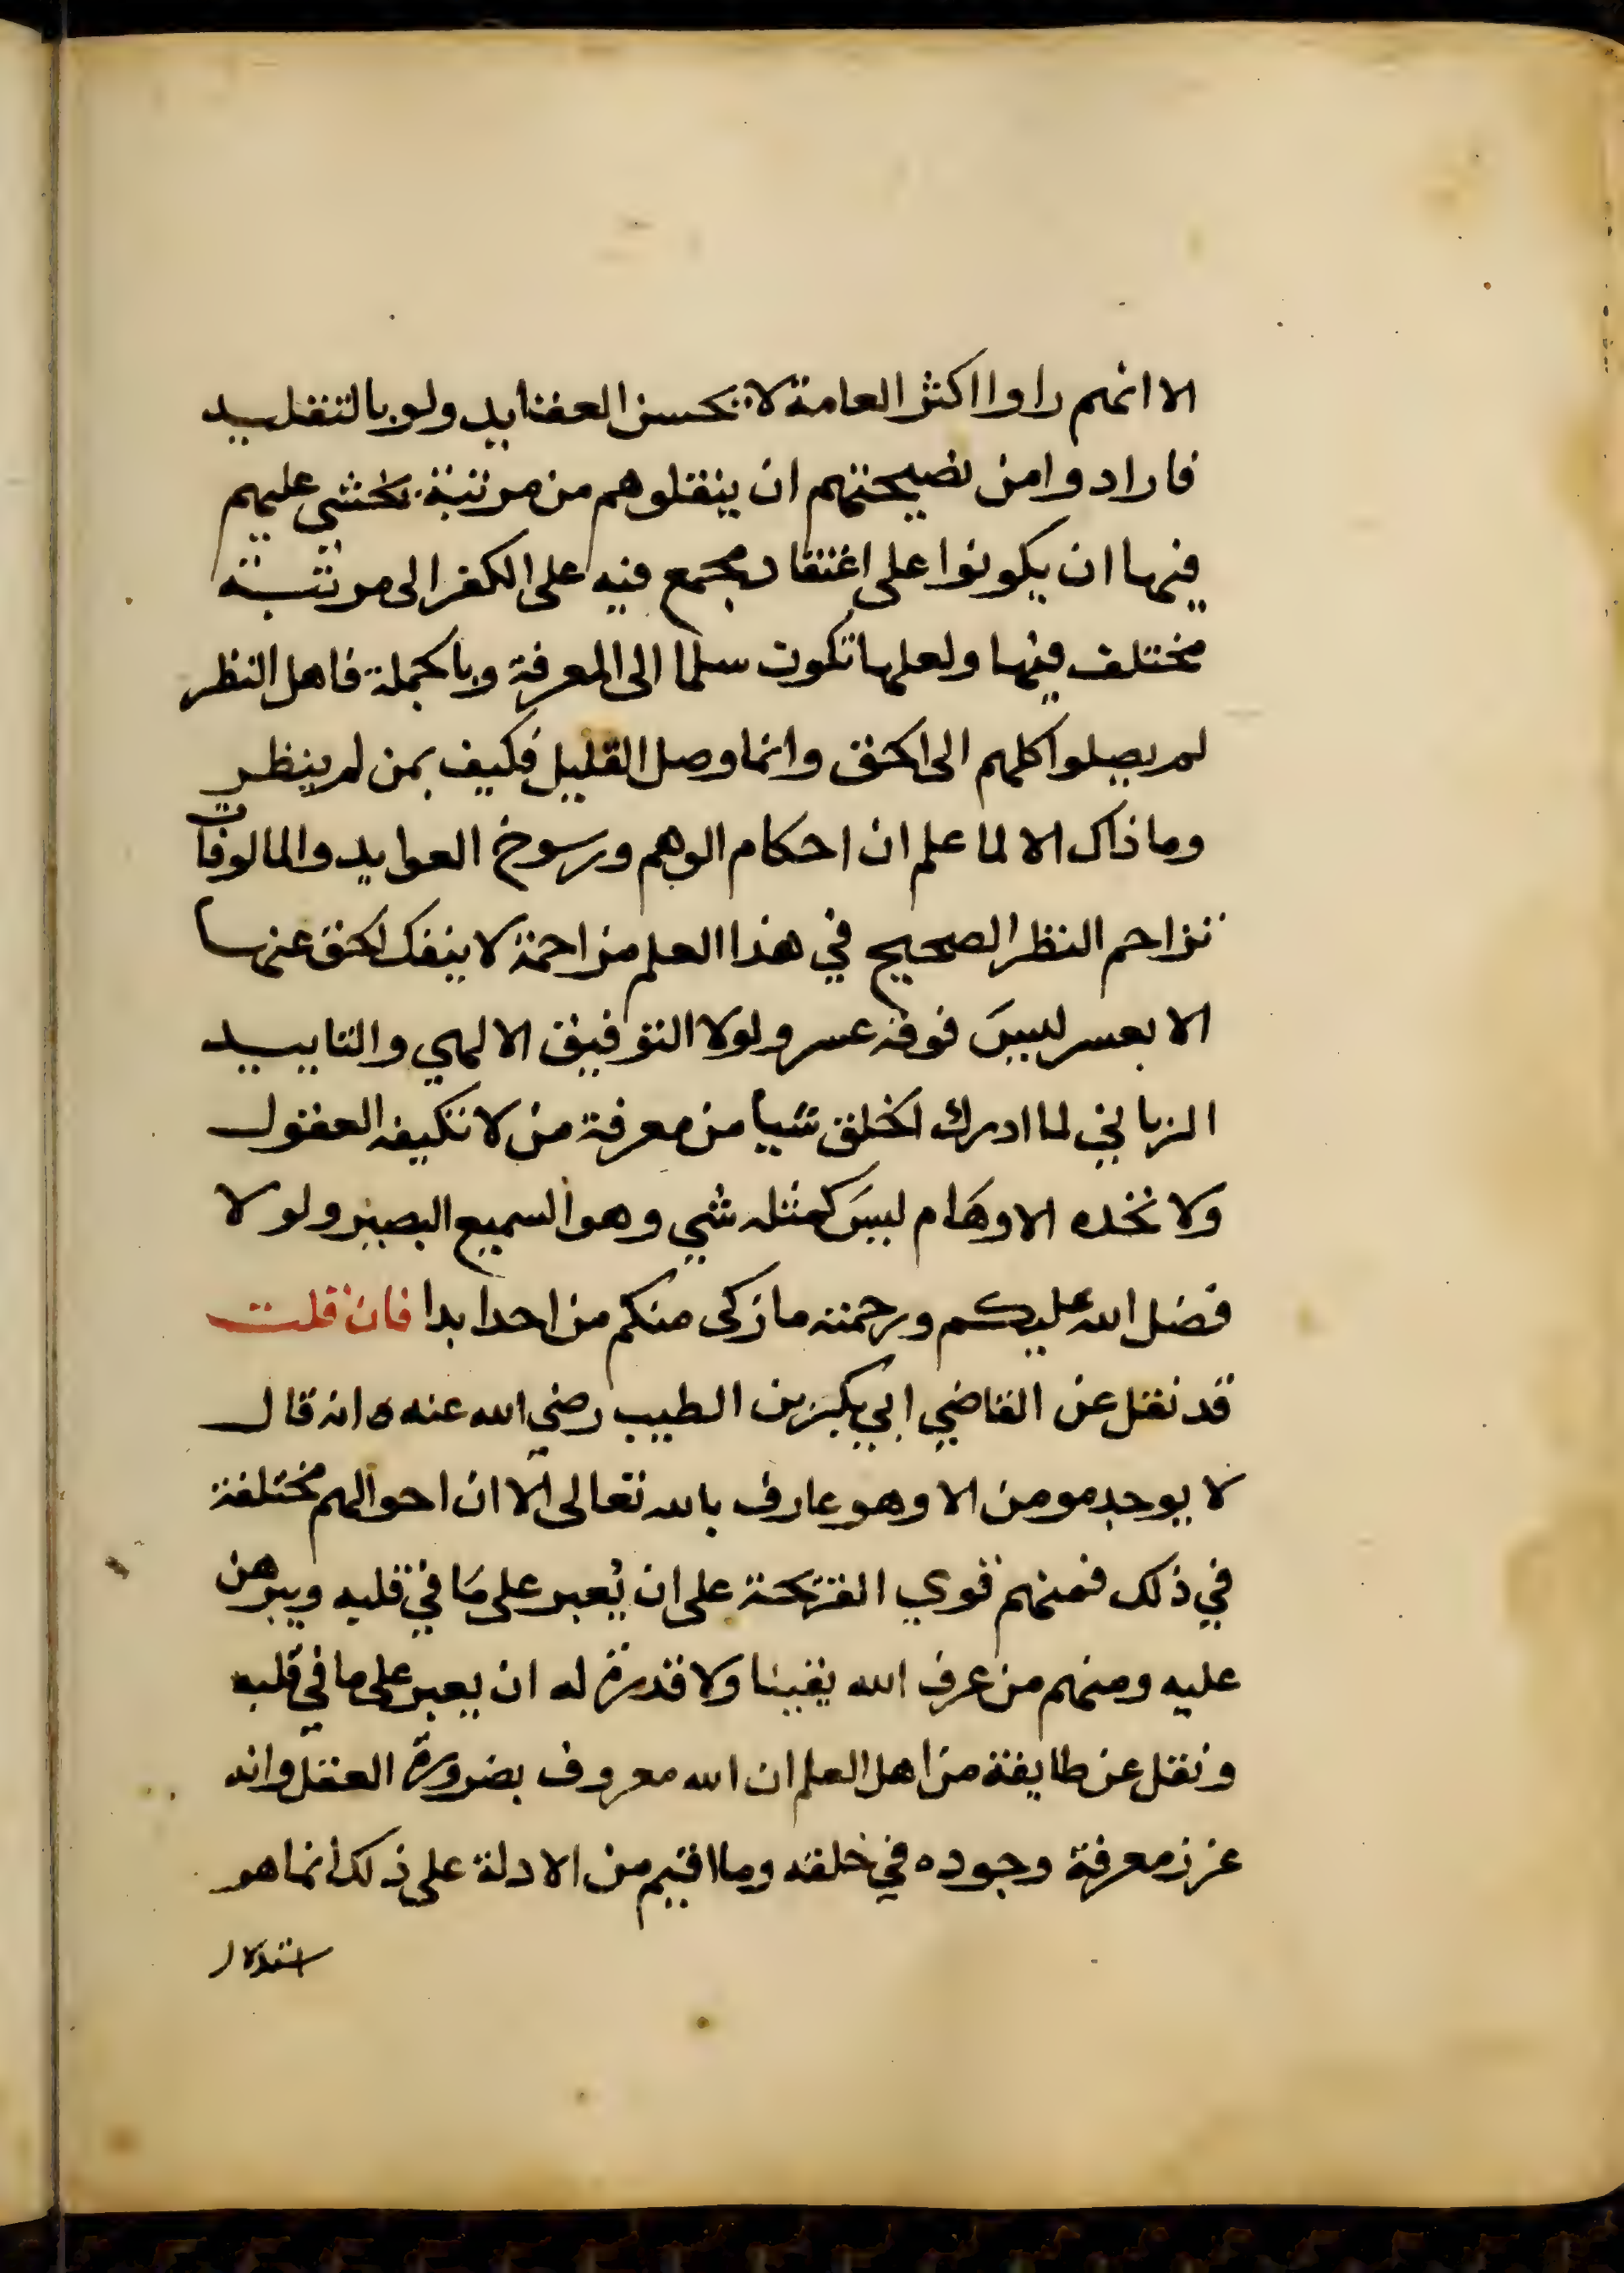 الا انهم راوا اكثر العامة لا تحسن العقايد ولو بالتقليد
فارادوا من نصيحتهم ان ينقلوهم من مرتبة يخشى عليهم
فيها ان يكونوا على اعتقاد مجمع فيه على الكفر الى مرتبة
مختلف فيها ولعلها تكون سلما الى المعرفة وبالجملة فاهل النظر
لم يصلوا كلهم الى الحق وانما وصل القليل فكيف بمن لم ينظر
وما ذاك الا لما علم ان احكام الوهم ورسوخ العوايد والمالوفات
تزاحم النظر الصحيح في هذا العلم مزاحمة لا ينفك الحق عنها
الا بعسر ليسَ فوقه عسر ولولا التوفيق الالهي والتاييد
الرباني لما ادرك الخلق شيا من معرفة من لا تكيفه العقول
ولا تحده الاوهَام ليسَ كمثله شي وهو السميع البصير ولولا
فضل الله عليكم ورحمته ما زكى منكم من احد ابدا فان قلت
قد نقل عن القاضي ابي بكر بن الطيب رضي الله عنه ه انه قال
لا يوجد مومن الا وهو عارف بالله تعالى الا ان احوالهم مختلفة
في ذلك فمنهم قوي القريحة على ان يُعبر على مَا في قلبه ويبرهن
عليه ومنهم من عرف الله يقينا ولا قدرة له ان يعبر على ما في قلبه
ونقل عن طايفة من اهل العلم ان الله معروف بضرورة العقل وانه
غرز معرفة وجوده في خلقه وما اقيم من الادلة على ذلك انما هو
استدلال